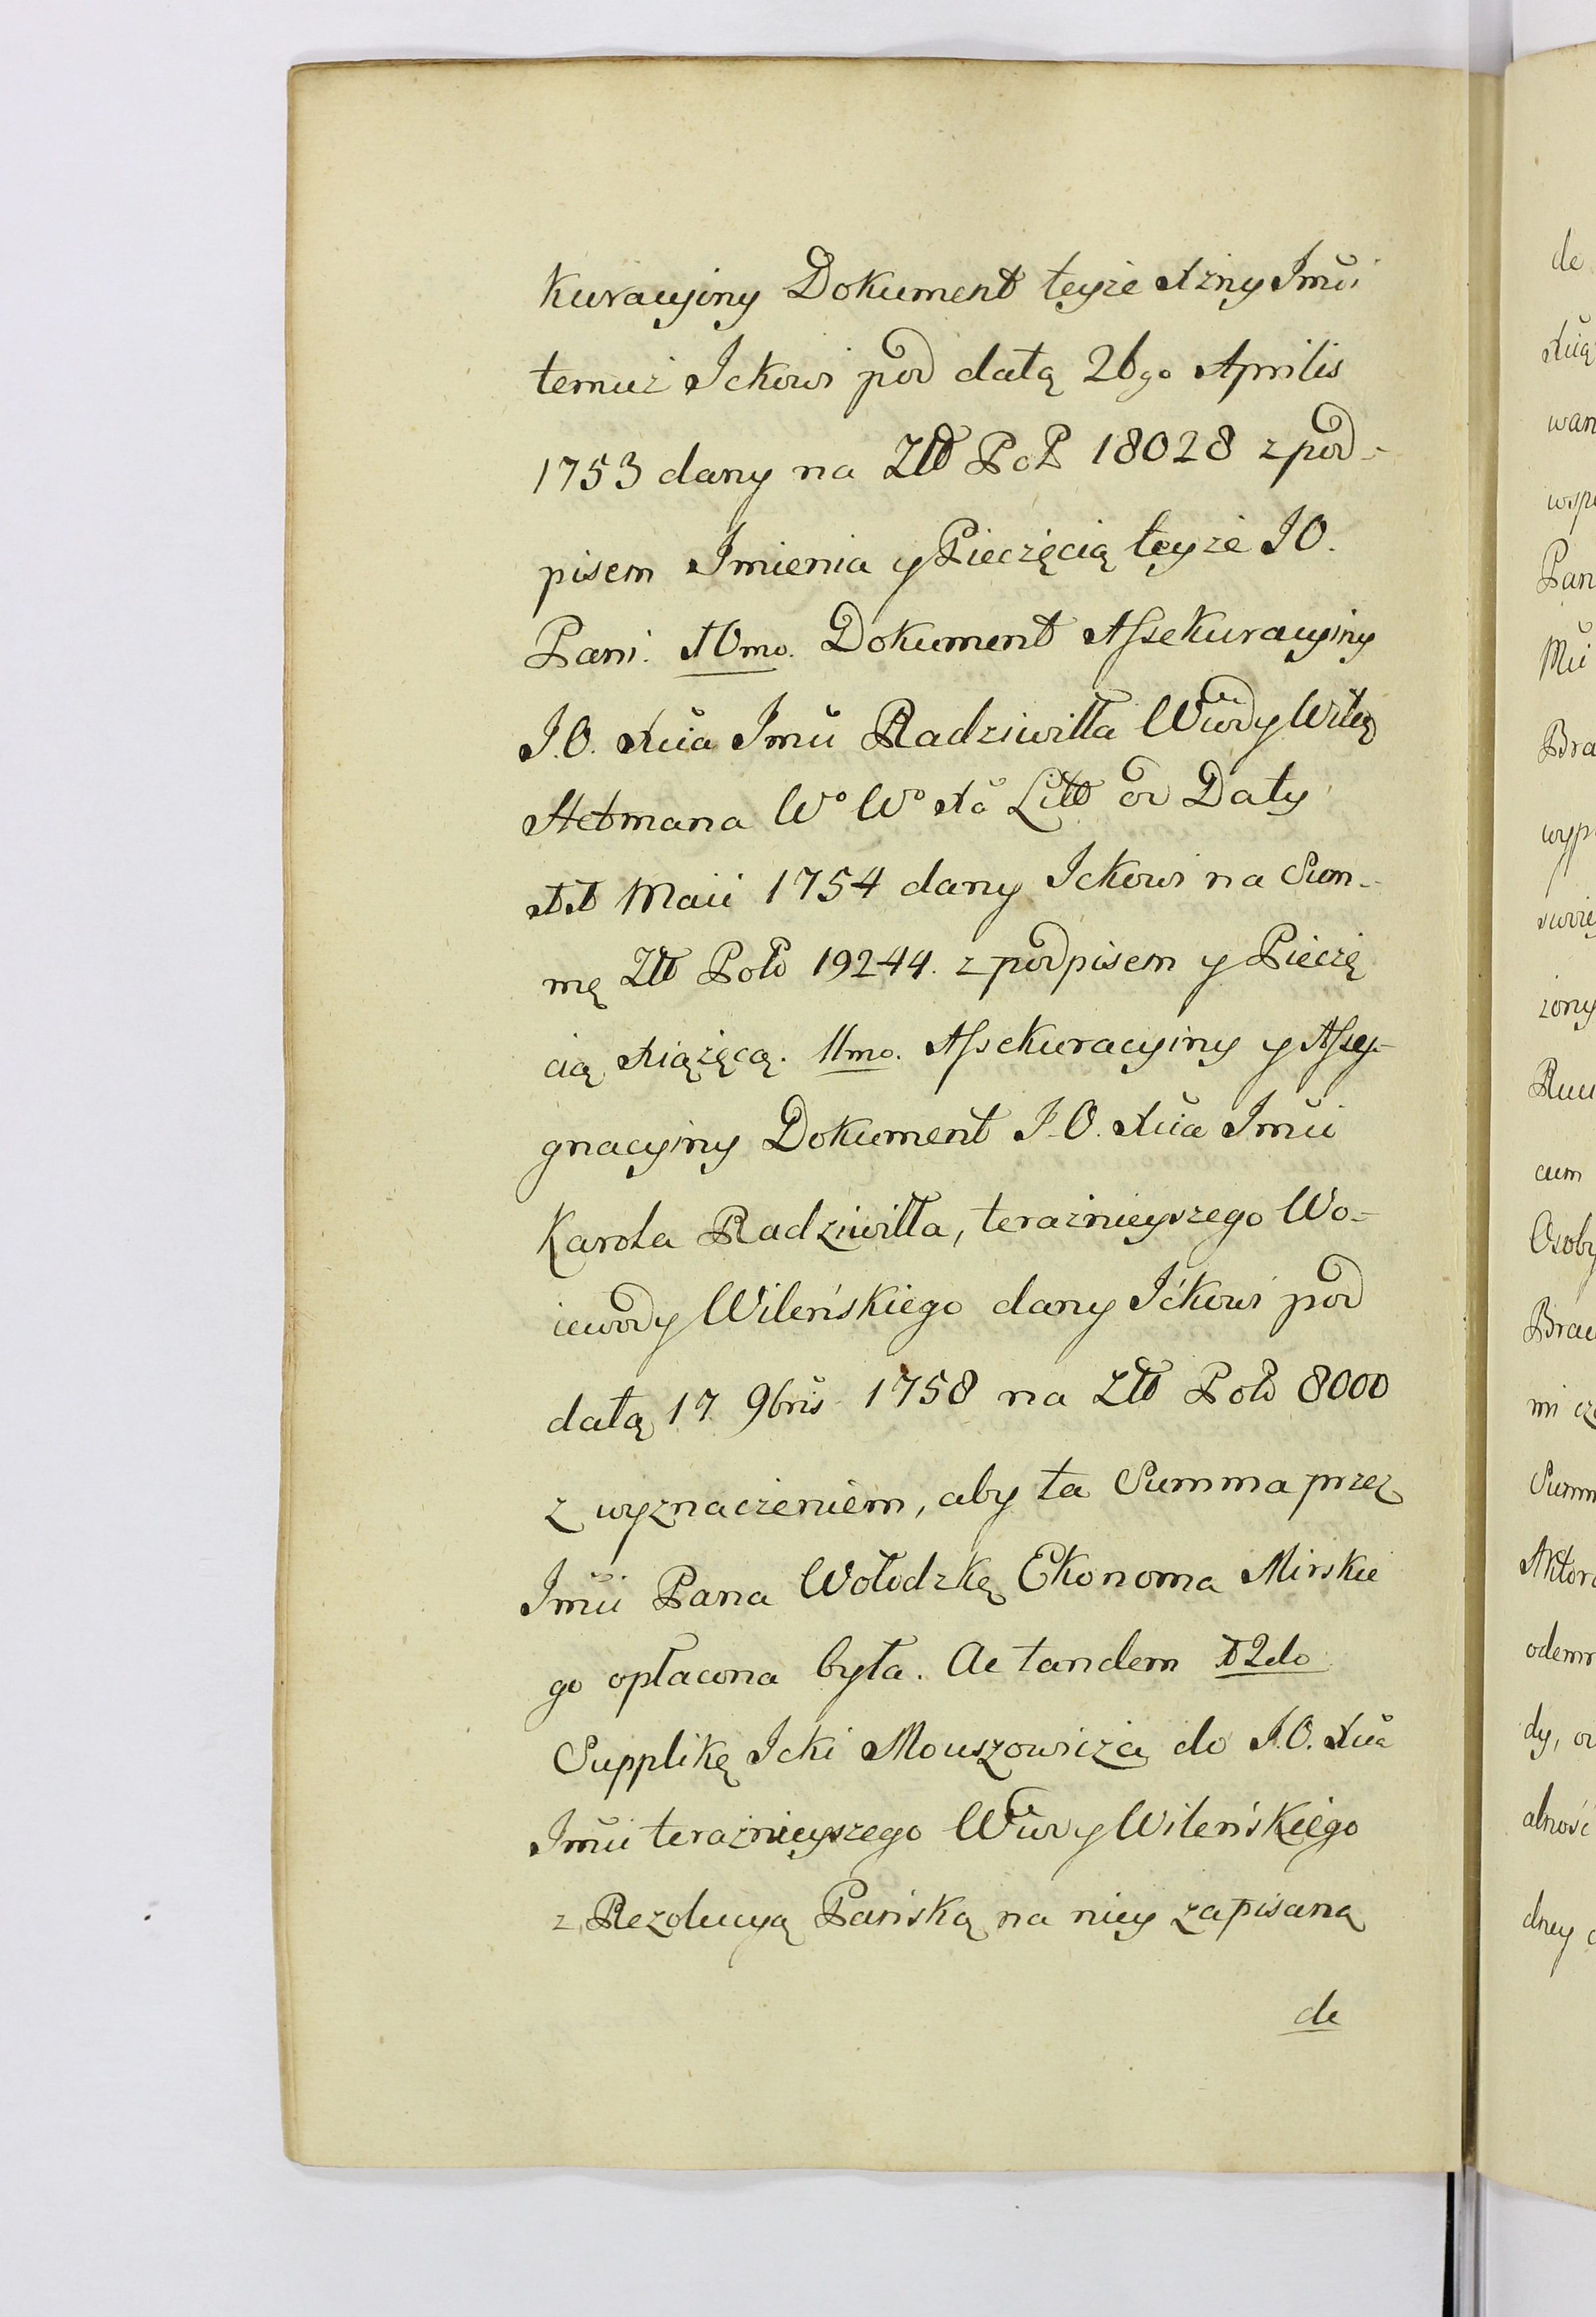 kuracyiny Dokument teyże Xżny Imći
temuż Ickowi pod datą 26go Aprilis
1753 dany na Złł Pol 18028 z pod-
pisem Imienia y Pieczęcią teyże JO.
Pani. 10mo. Dokument Assekuracyiny
J.O. Xcia Imci Radziwiłła Wwdy Wileg
Hetmana Wo Wo Xa Litt od Daty
11 Maii 1754 dany Ickowi na Sum-
mę Złł Pols 19244. z podpisem y Pieczę
cią Xiążęcą. 11mo. Assekuracyiny y Assy-
gnacyiny Dokument J.O. Xcia Imci
Karola Radziwiłła, teraznieyszego Wo-
iewody Wileńskiego dany Ickowi pod
datą 17 9bris 1758 na Złł Pols 8000
z wyznaczeniem, aby ta Summa przez
Imci Pana Wołodzkę Ekonoma Mirskie
go opłacona była. Ac tandem 12do
Supplikę Icki Mouszowicza do J.O. Xcia
Imci teraznieyszego Wwdy Wileńskiego
z Rezolucyą Pańską na niey zapisaną
de
de
Xcią
wan
wspo
Pan
Mci
Bra
wyp
żony
cum
Osoby
mi
Summ
Aktor
odemn
dy, o
alność
dney